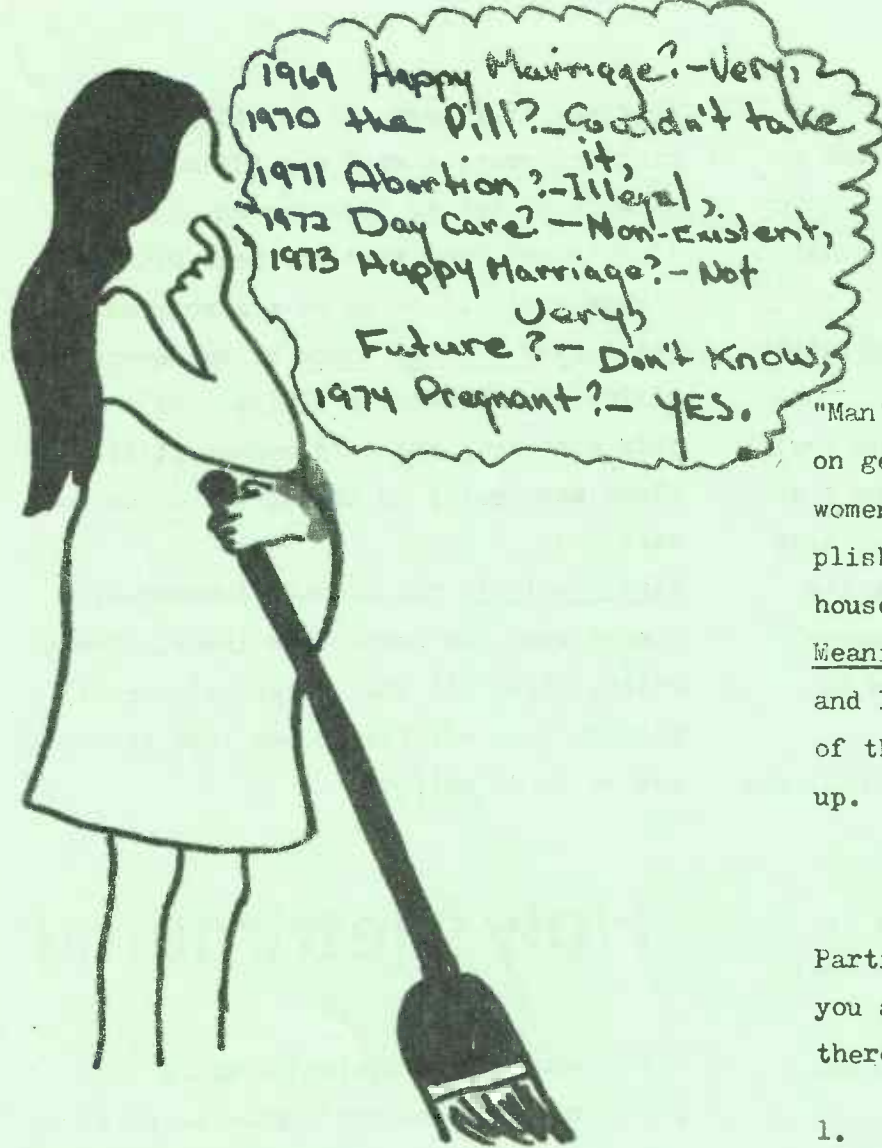 1969 Happy Marriage?-Very,
1970 the Pill?-Couldn't take
it,
1971 Abortion?-Illegal,
1972 Day Care?-Non-Existent,
1973 Happy Marriage?-Not
Very,
Future?-Don't Know,
1974 Pregnant?-YES.
"Man
on ge
women
plish
house
Meani
and
of th
up.
Parti
you a
there
1.